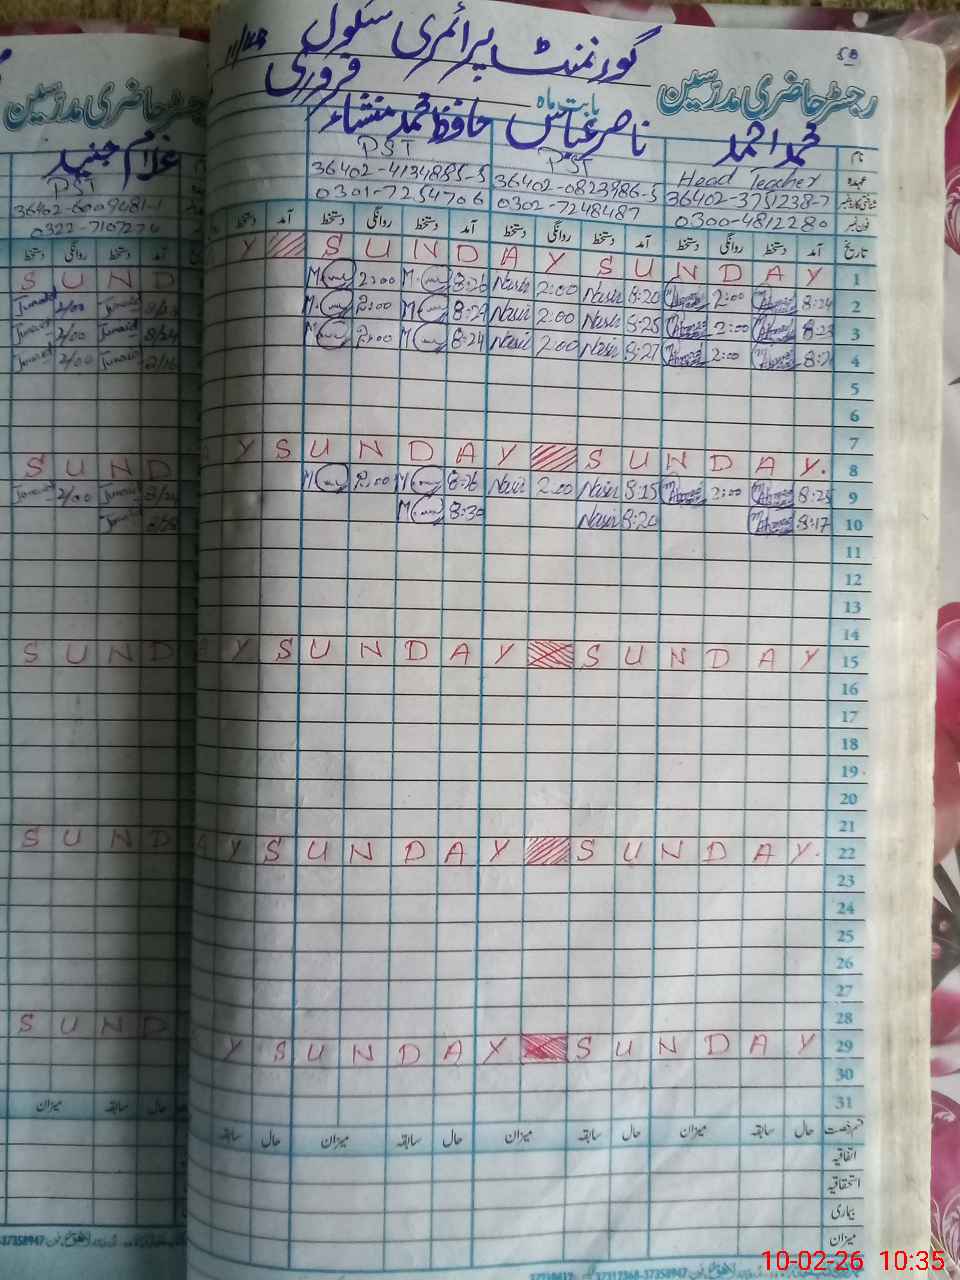 گورنمنٹ پرائمری سکول 11/4R
50
رجسٹر حاضری مدرسین بابت ماہ فروری
نام محمد احمد ناصر عباس حافظ محمد منشاء
عہدہ Head Teacher PST PST
شناختی کارڈ نمبر 36402-3751238-7 36402-0823986-5 36402-4134885-5
فون نمبر 0300-4812280 0302-7248487 0301-7254706
تاریخ آمد دستخط روانگی دستخط آمد دستخط روانگی دستخط آمد دستخط روانگی دستخط آمد دستخط
Y S U N D A Y S U N D A Y
1
2:00 8:26 Nasir 2:00 Nasir 8:20 2:00 8:24 2
2:00 8:29 Nasir 2:00 Nasir 8:25 2:00 8:23 3
2:00 8:24 Nasir 2:00 Nasir 8:27 2:00 4
5
6
7
Y S U N D A Y S U N D A Y. 8
2:00 8:26 Nasir 2:00 Nasir 8:15 2:00 8:25 9
8:30 Nasir 8:20 8:17 10
11
12
13
14
Y S U N D A Y S U N D A Y 15
16
17
18
19
20
21
Y S U N D A Y S U N D A Y. 22
23
24
25
26
27
28
Y S U N D A Y S U N D A Y 29
30
31
قسم رخصت حال سابقہ میزان حال سابقہ میزان حال سابقہ میزان حال سابقہ
اتفاقیہ
استحقاقیہ
بیماری
میزان
رجسٹر حاضری مدرسین
غلام جنید
PST
0322-
دستخط روانگی دستخط آمد
S U N D
Junaid 2/00 Junaid
Junaid 2/00 Junaid 8/24
Junaid 2/00 Junaid
S U N D
Junaid 2/00 Junaid
Junaid
S U N D
S U N D
S U N D
میزان سابقہ حال
37358947
10-02-26 10:35